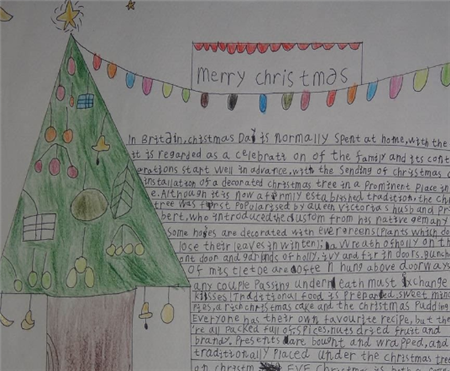 merry christmas
In Britain, christmas Day is normally spent at home, with the
it is regarded as a celebrati on of the family and its cont
erations start well in advance, with the sending of christmas c
installation of a decorated christmas tree in a prominent place in
e. Although it is now a firmly established tradition, the Chr
tree was first popularised by queen Victoria's husband pr
bert, who introduced the custom from his native gemany
Some homes are decorated with Evergreens (plants which do
lose their leaves in winter); a wreath of holly on th
ont door and garlands of holly, ivy and fir indoors, bunch
of mistletoe are often hang above doorways
any couple passing underneath must Exchange
kisses! Traditional food is prepared, sweet min
pies, a rich christmas cake and the christmas Pudding
Everyone has their own favourite recipe, but the
're all packed full of spices, nuts dried fruit and
brandy. Presents are bought and wrapped, and
traditionally placed under the christmas tree
on christm EVE christmas is both a